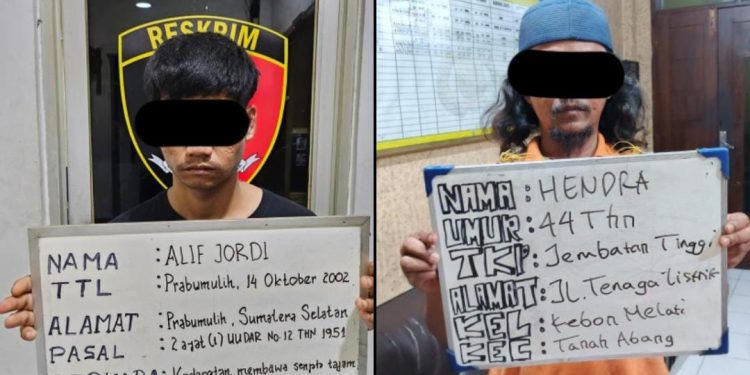 RESKRIM
NAMA : ALIF JORDI
TTL : Prabumulih, 14 Oktober 2002
ALAMAT : Prabumulih, Sumatera Selatan
PASAL : 2 ayat (1) UU DAR No.12 THN 1951
: Kedapatan membawa senpta tajam
NAMA : HENDRA
UMUR : 44 Thn
TKP : Jembatan Tinggi
ALAMAT : JL. Tenaga listrik
KEL : Kebon Melati
KEC : Tanah Abang